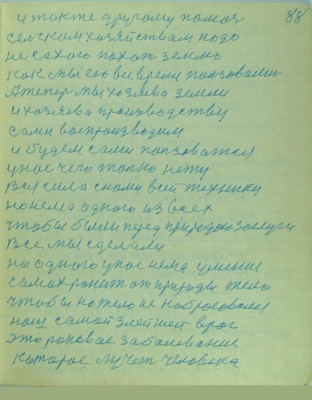 88
и так же другому помоч
сельском хозяйствам подо
не сахого пахот землю
как мы его все время ползовали
Атепер мы хозяева земли
и хозяева производству
сами воспроизводим
и будем сами ползоватся
унас чего толко нету
вся сила с нами всей техники
но нема одного из всех
чтобы были перед природою заслуги
все мы сделали
но одного унас нема умения
самохранит от природы жено
чтобы на тело не набросовался
наш самой злейшет враг
это роповое заболевание
которое мучет человека